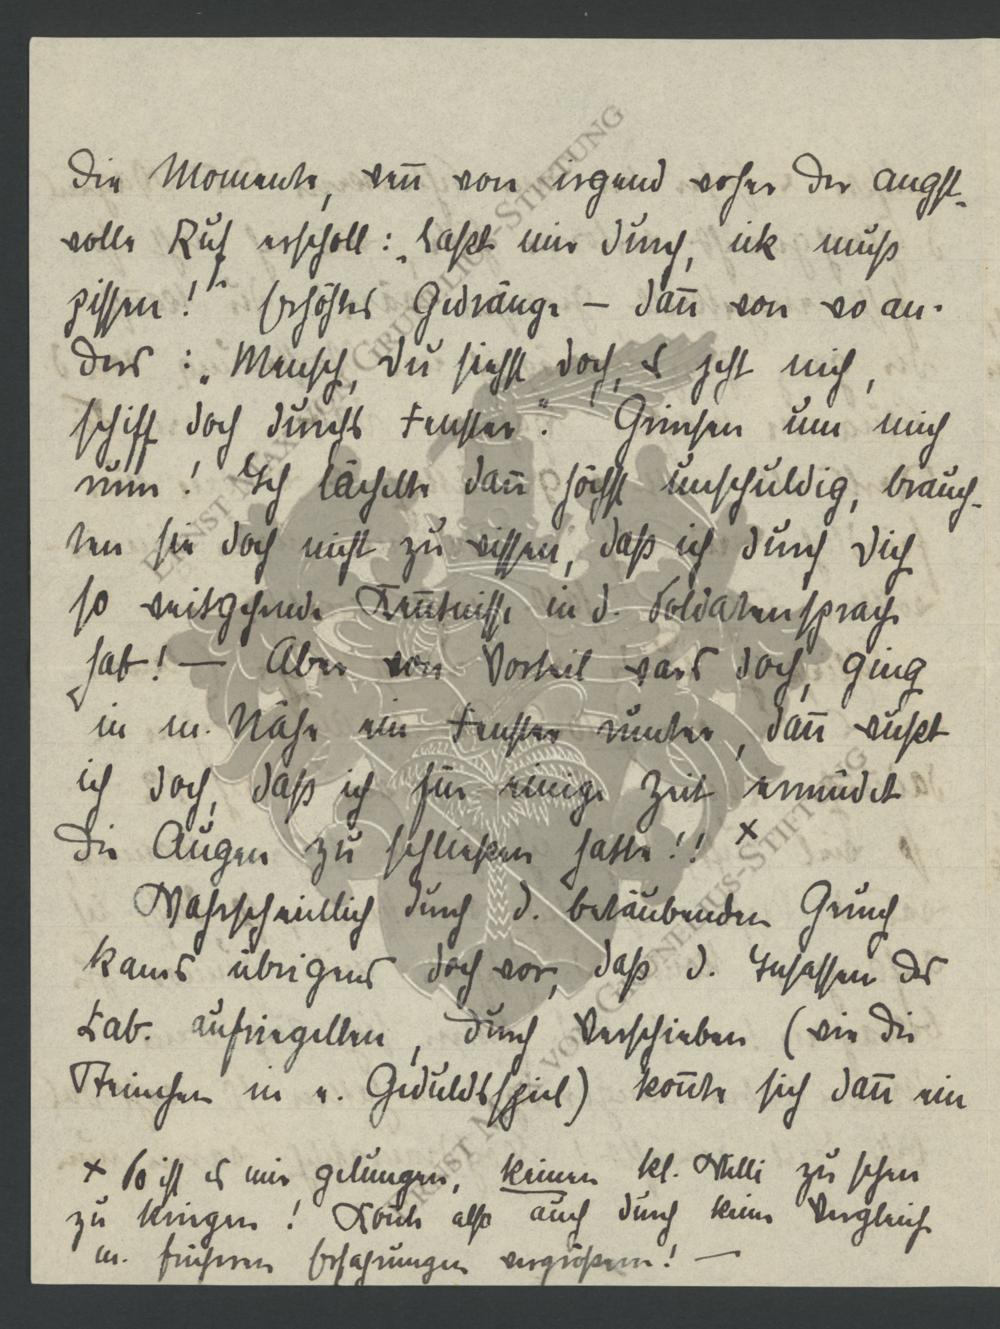 die Momente, wen̄ von irgend woher der angst-
volle Ruf erscholl: „Laßt mir durch, ick muß
pissen!" Erhöhtes Gedränge – dan̄ von wo an-
ders: „Mensch, du siehst doch, es geht nich,
schiff doch durchs Fenster". Grinsen um mich
rum! Ich lächelte dan̄ höchst unschuldig, brauch-
ten sie doch nicht zu wissen, daß ich durch Dich
so weitgehende Ken̄tnisse in d. Soldatensprache
hab! — Aber von Vorteil wars doch, ging
in m. Nähe ein Fenster runter, dan̄ wußt
ich doch, daß ich für einige Zeit ermüdet
die Augen zu schließen hatte!! ×
Wahrscheinlich durch d. betäubenden Geruch
kams übrigens doch vor, daß d. Insassen des
Kab. aufriegelten, durch Verschieben (wie die
Steinchen in e. Geduldsspiel) kon̄te sich dan̄ ein
× So ist es mir gelungen, keinen kl. Willi zu sehen
zu kriegen! Konnte also auch durch keine Vergleich
m. früheren Erfahrungen vergrößern! —
ERNST MORITZ VON GRUNELIUS-STIFTUNG
ERNST M VON GRUNELIUS-STIFTUNG